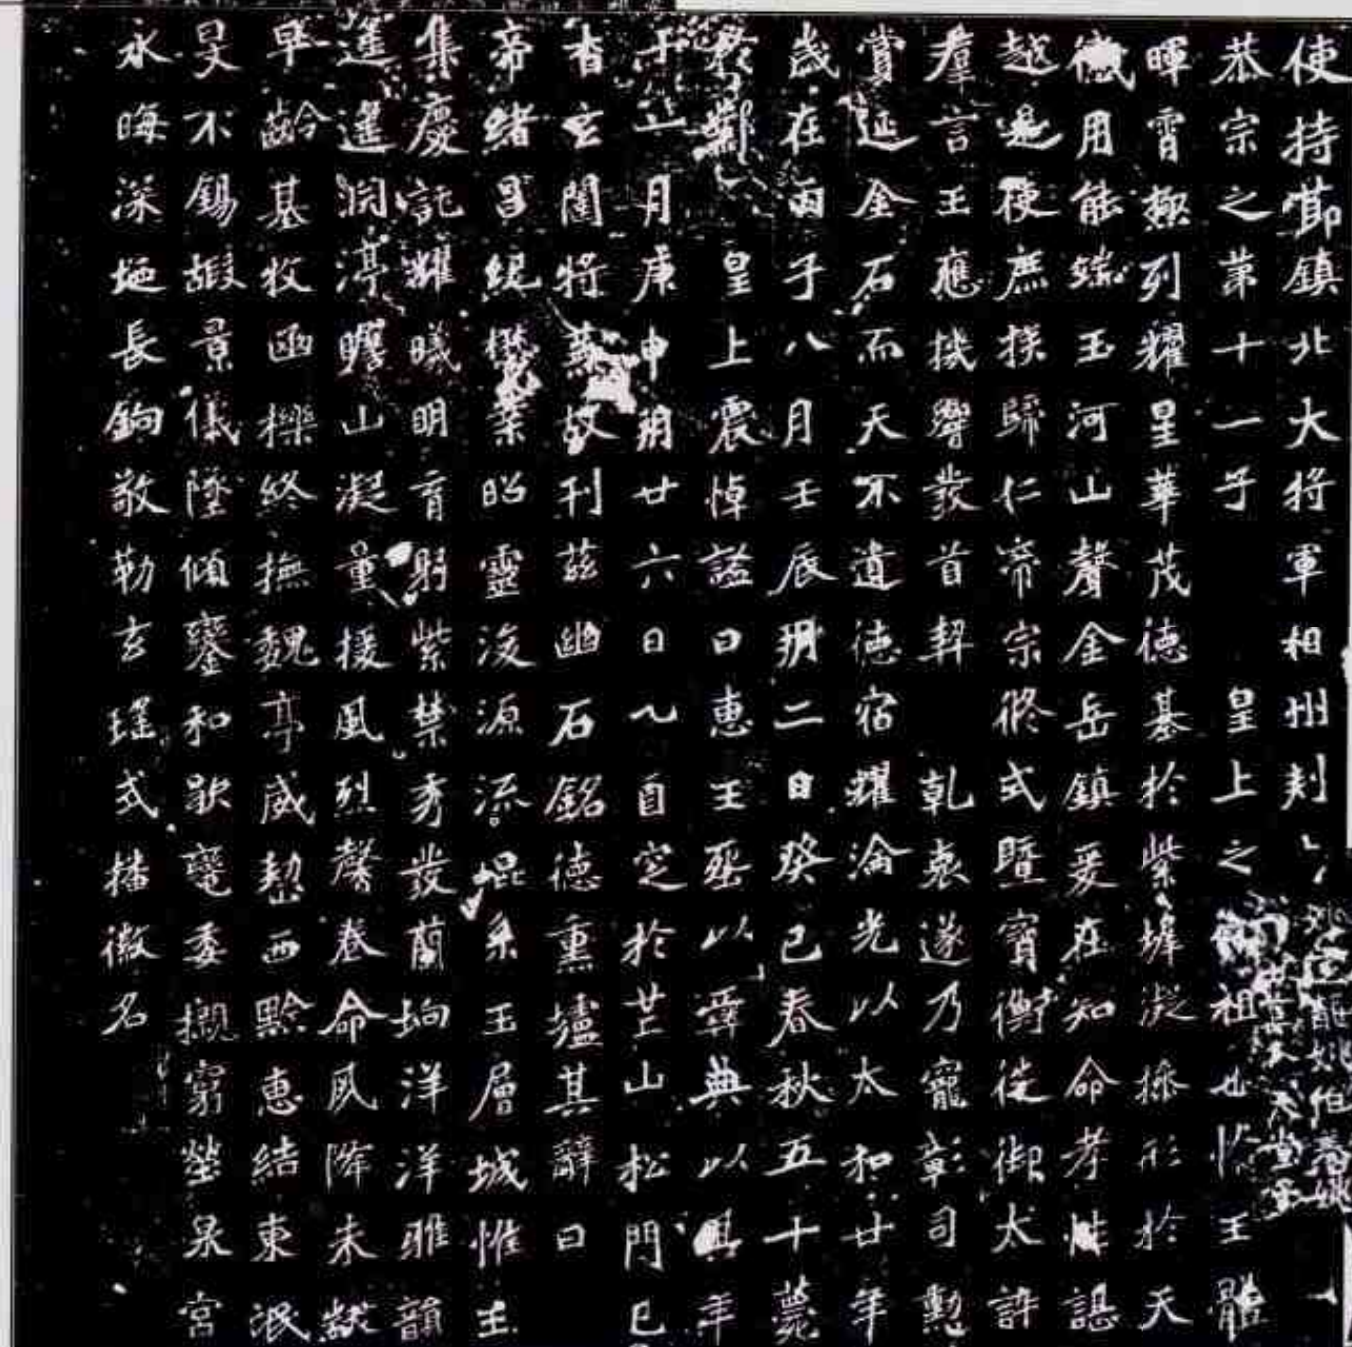 使持節鎮北大將軍相州刺
恭宗之第十一子 皇上之祖也惟王體
暉霄極列耀星華茂德基於紫墀凝操形於天
儀用能端玉河山聲金岳鎮爰在知命孝性諶
越是使庶族歸仁帝宗攸式暨寶衡徙御太訊
羣言王應機響發首契 乾衷遂乃寵彰司勳
賞延金石而天不遺德宿耀淪光以太和廿年
歲在丙子八月壬辰朔二日癸巳春秋五十薨
於鄴 皇上震悼諡曰惠王葬以彝典以其年
十一月庚申朔廿六日乙酉窆於芒山松門已
杳玄闥將蕪故刊茲幽石銘德熏壚其辭曰
帝緒昌紀懋業昭靈浚源流崐系玉層城惟王
集慶託耀曦明育躬紫禁秀發蘭坰洋洋雅韻
遙遙淵渟瞻山凝量援風烈馨卷命夙降未黻
早齡基牧函櫟終撫魏亭威整西黔惠結東氓
旻不錫嘏景儀墜傾鑾和歇轡委櫬窮塋泉宮
永晦深埏長鉤敬勒玄瑤式播徽名